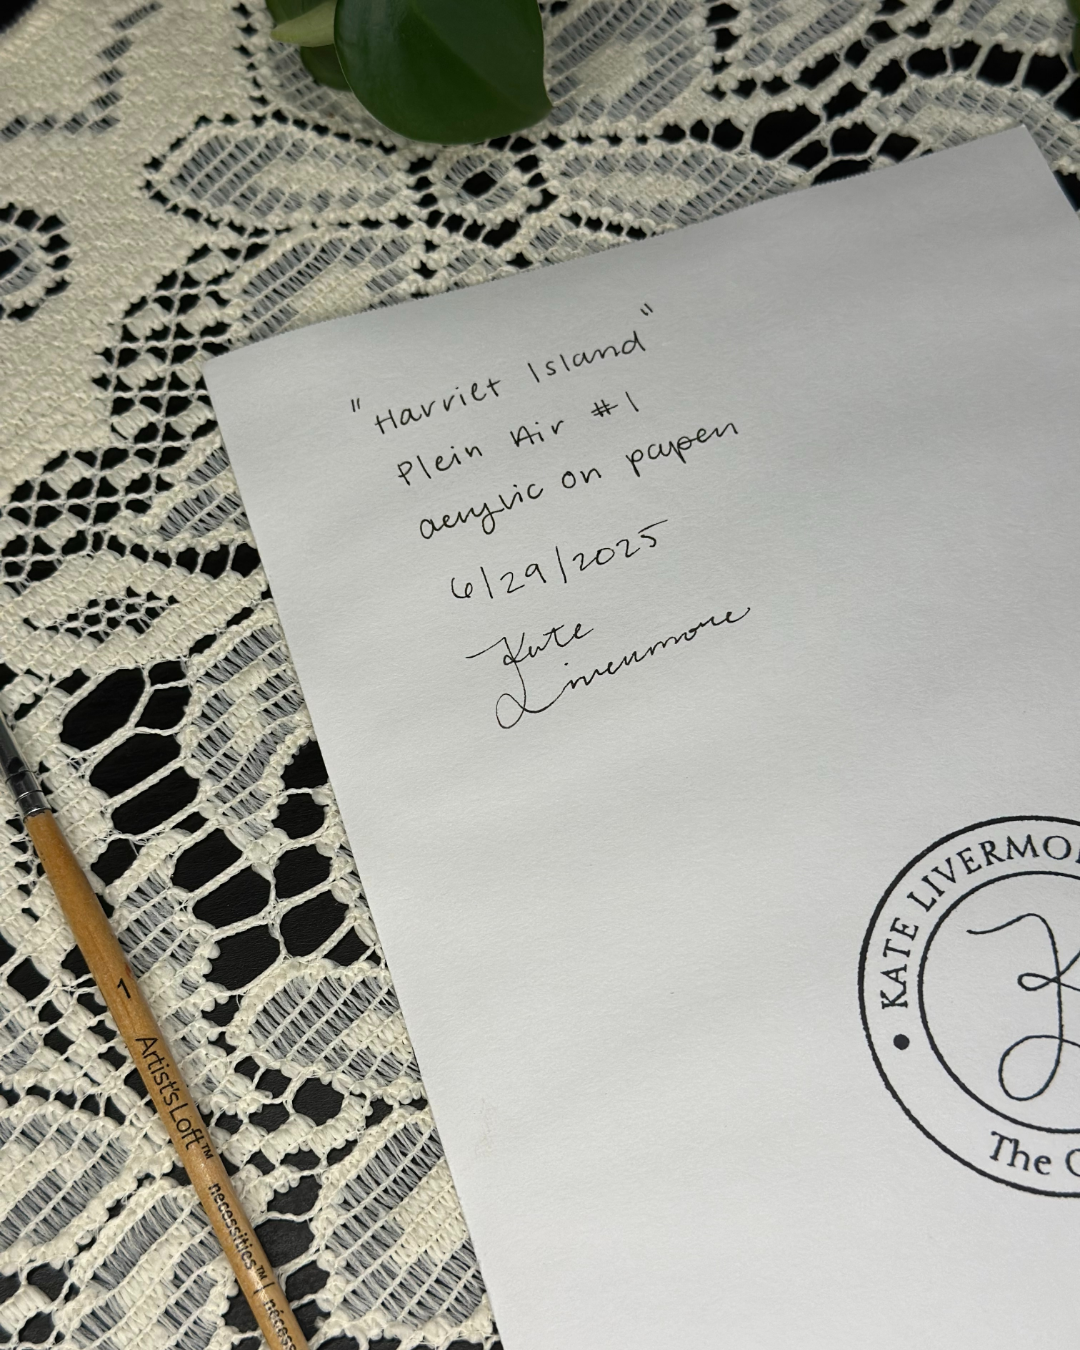 "Harriet Island"
Plein Air #1
acrylic on paper
6/29/2025
Kate
Livermore
KATE LIVERMO
The
1
Artist's Loft™
necessities™ |